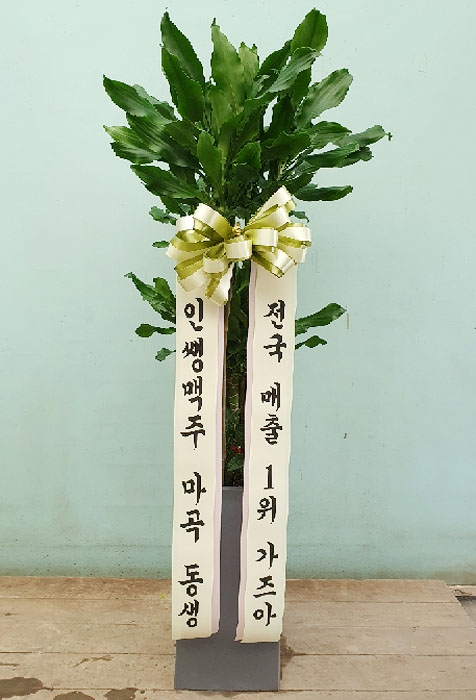 인쌩맥주 마곡 동생
전국 매출 1위 가즈아